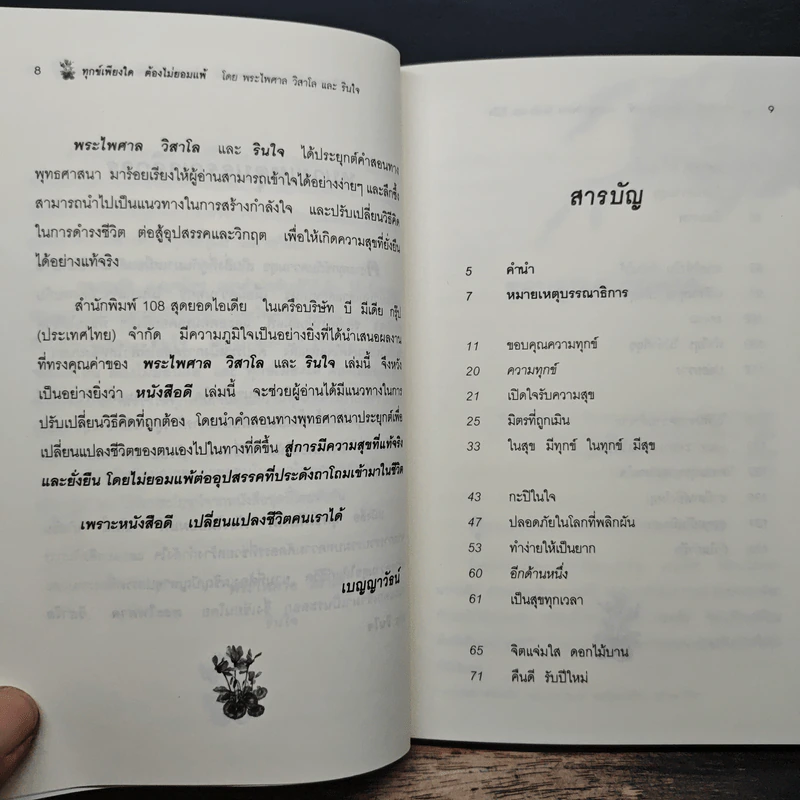 8 ทุกข์เพียงใด ต้องไม่ยอมแพ้ โดย พระไพศาล วิสาโล และ รินใจ
พระไพศาล วิสาโล และ รินใจ ได้ประยุกต์คำสอนทาง
พุทธศาสนา มาร้อยเรียงให้ผู้อ่านสามารถเข้าใจได้อย่างง่ายๆ และลึกซึ้ง
สามารถนำไปเป็นแนวทางในการสร้างกำลังใจ และปรับเปลี่ยนวิธีคิด
ในการดำรงชีวิต ต่อสู้อุปสรรคและวิกฤต เพื่อให้เกิดความสุขที่ยั่งยืน
ได้อย่างแท้จริง
สำนักพิมพ์ 108 สุดยอดไอเดีย ในเครือบริษัท บี มีเดีย กรุ๊ป
(ประเทศไทย) จำกัด มีความภูมิใจเป็นอย่างยิ่งที่ได้นำเสนอผลงาน
ที่ทรงคุณค่าของ พระไพศาล วิสาโล และ รินใจ เล่มนี้ จึงหวัง
เป็นอย่างยิ่งว่า หนังสือดี เล่มนี้ จะช่วยผู้อ่านได้มีแนวทางในการ
ปรับเปลี่ยนวิธีคิดที่ถูกต้อง โดยนำคำสอนทางพุทธศาสนาประยุกต์เพื่อ
เปลี่ยนแปลงชีวิตของตนเองไปในทางที่ดีขึ้น สู่การมีความสุขที่แท้จริง
และยั่งยืน โดยไม่ยอมแพ้ต่ออุปสรรคที่ประดังถาโถมเข้ามาในชีวิต
เพราะหนังสือดี เปลี่ยนแปลงชีวิตคนเราได้
เบญญาวัธน์
9
สารบัญ
5 คำนำ
7 หมายเหตุบรรณาธิการ
11 ขอบคุณความทุกข์
20 ความทุกข์
21 เปิดใจรับความสุข
25 มิตรที่ถูกเมิน
33 ในสุข มีทุกข์ ในทุกข์ มีสุข
43 กะปิในใจ
47 ปลอดภัยในโลกที่พลิกผัน
53 ทำง่ายให้เป็นยาก
60 อีกด้านหนึ่ง
61 เป็นสุขทุกเวลา
65 จิตแจ่มใส ดอกไม้บาน
71 คืนดี รับปีใหม่